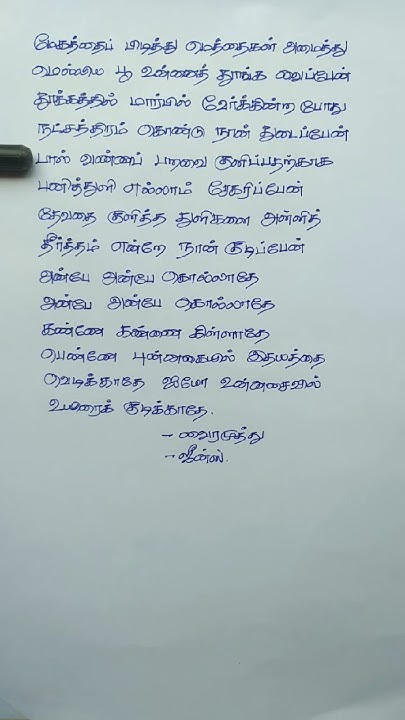 மேகத்தைப் பிடித்து மெத்தைகள் அமைத்து
மெல்லிய பூ உன்னைத் தூங்க வைப்பேன்
தூக்கத்தில் மார்பில் வேர்க்கின்ற போது
நட்சத்திரம் கொண்டு நான் துடைப்பேன்
பால் வண்ணப் பறவை குளிப்பதற்காக
பனித்துளி எல்லாம் சேகரிப்பேன்
தேவதை குளித்த துளிகளை அள்ளித்
தீர்த்தம் என்றே நான் குடிப்பேன்
அன்பே அன்பே கொல்லாதே
அன்பே அன்பே கொல்லாதே
கண்ணே கண்ணை கிள்ளாதே
பெண்ணே புன்னகையில் இதயத்தை
வெடிக்காதே ஐயோ உன்னசைவில்
உயிரைக் குடிக்காதே.
- வைரமுத்து
- ஜீன்ஸ்.